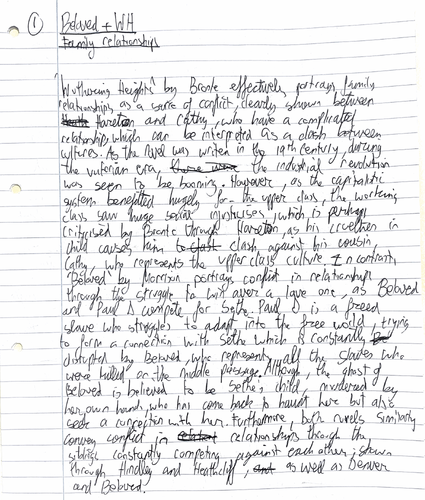 1
Beloved + WH
Family relationships
'Wuthering Heights' by Bronte effectively portrays family
relationships as a source of conflict, clearly shown between
Hareton and Cathy, who have a complicated
relationship, which can be interpreted as a clash between
cultures. As the novel was written in the 19th century, during
the victorian era, there were the industrial revolution
was seen to be booming. However, as the capitalistic
system benefitted hugely for the upper class, the working
class saw huge social injustices, which is perhaps
criticised by Bronte through Hareton, as his cruel
child causes him to clash against his cousin,
Cathy, who represents the upper class culture. In contrast,
'Beloved' by Morrison portrays conflict in relationships
through the struggle to win over a love one, as Beloved
and Paul D compete for Sethe. Paul D is a freed
slave who struggles to adapt into the free world, trying
to form a connection with Sethe which is constantly
disrupted by Beloved, who represents all the slaves who
were killed on the middle passage. Although, the ghost of
Beloved is believed to be Sethe's child, murdered by
her own hands, who has come back to haunt her but also
seek a connection with her. Furthermore, both novels similarly
convey conflict in relationships through the
siblings constantly competing against each other, shown
through Hindley and Heathcliff, and as well as Denver
and Beloved.